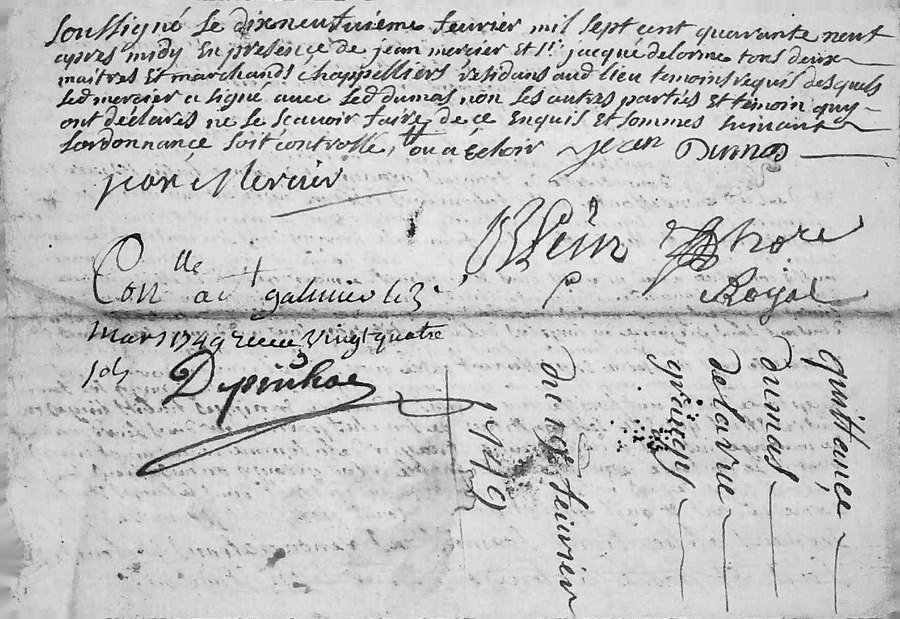 soussigné le dixneufuieme feurier mil sept cent quarante neuf
apres midy En presence de jean mercier et sr jacque delorme tous deux
maitres Et marchands chappelliers residans aud lieu temoins requis desquels
led mercier a signé auec led dumas non les autres parties Et temoin quy
ont declarés ne le scauoir faire de ce Enquis Et sommes suiuant
Lordonnance soit controllé, ou a Echoir jean Dumas
jean Mercier
Royal
Conlle a St galmier le 3e
mars 1749 receu vingt quatre
sols
quittançe
dumas
delarue
du 19e feurier
1749